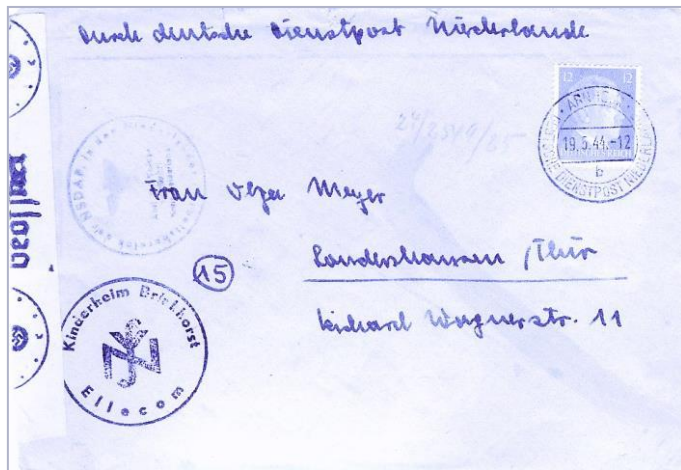 Durch deutsche Dienstpost Niederlande
12 12
ARNHEM
19.5.44.-12
b
DIENSTPOST NIEDERL
24/2540/25
NSDAP. in den Niederlanden
Frau Olga Meyer
15
Sondershausen /Thür
Richard Wagnerstr. 11
Kinderheim Brielhorst
Ellecom